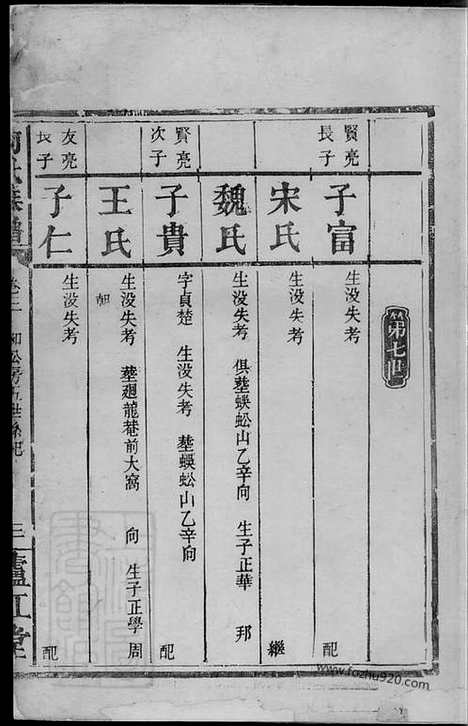 第七世
賢亮長子
子富
生没失考
配
宋氏
生没失考
繼
魏氏
生没失考 俱塟蜈蚣山乙辛向 生子正華 邦
賢亮次子
子貴
字貞楚 生没失考 塟蜈蚣山乙辛向
配
王氏
生没失考 塟廻龍菴前大窩 向 生子正學 周
朝
友亮長子
子仁
生没失考
配
氏族譜
卷三
三
廬江堂
www.fozhu920.com